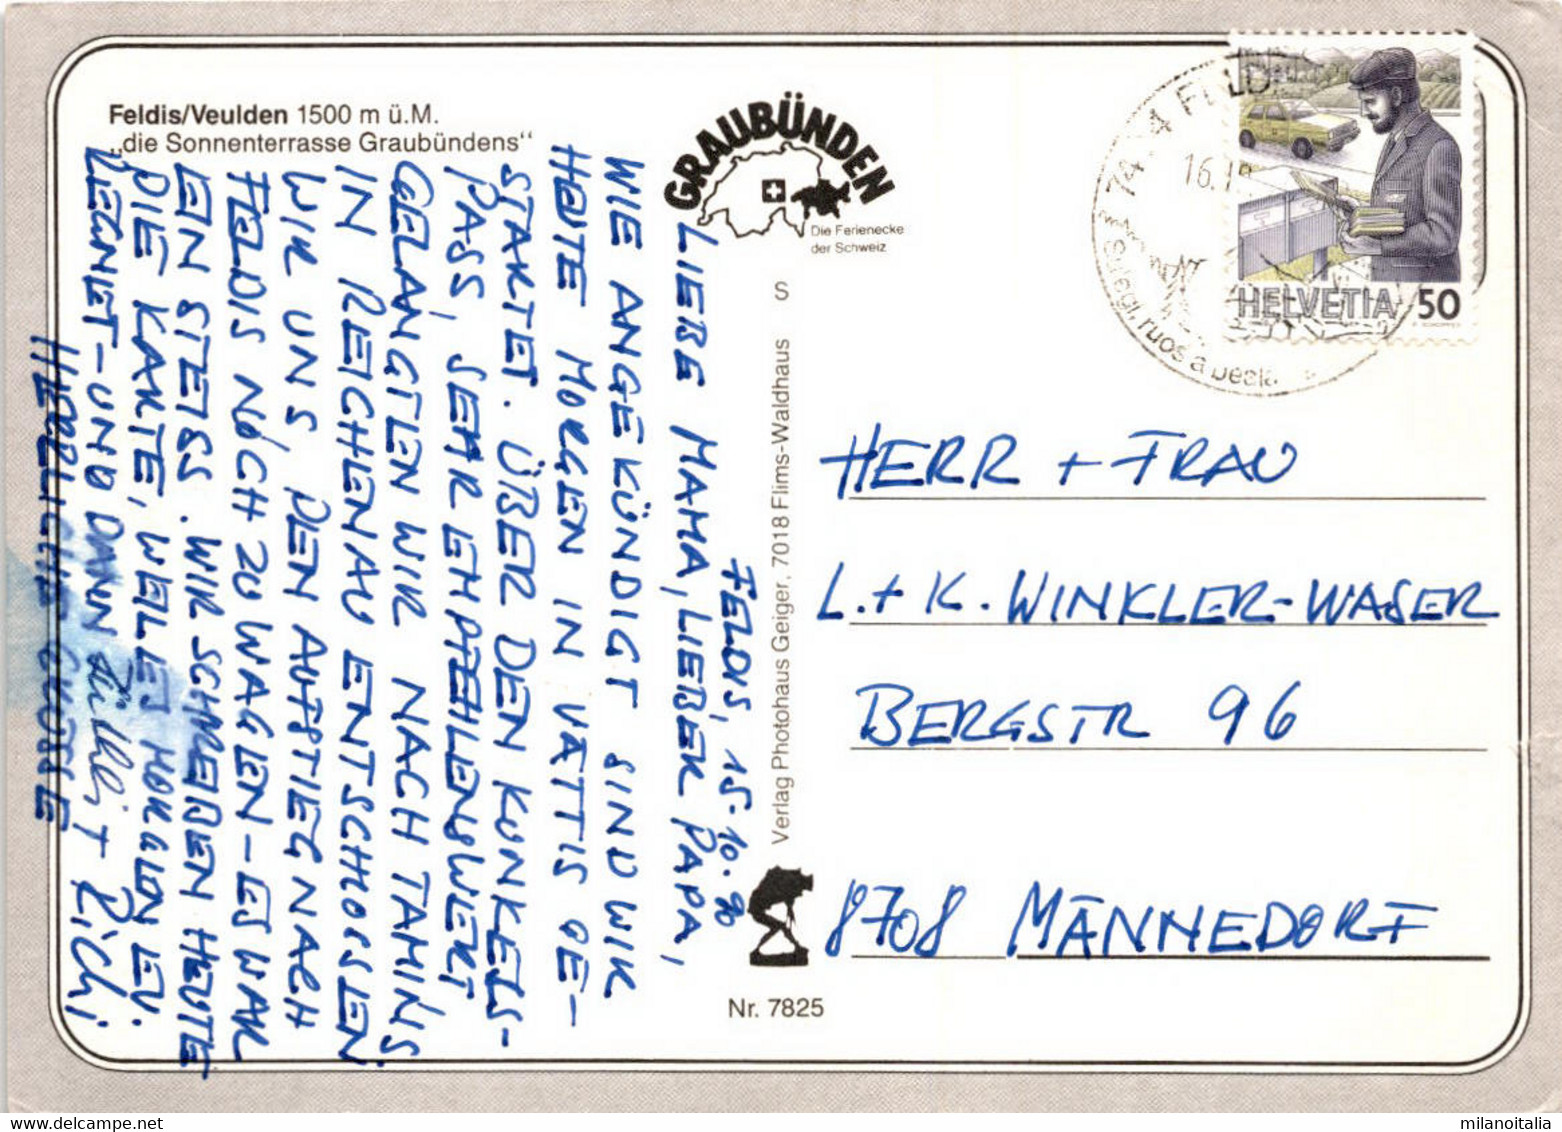 Feldis/Veulden 1500 m ü.M.
„die Sonnenterrasse Graubündens"
GRAUBÜNDEN
Die Ferienecke
der Schweiz
S
Verlag Photohaus Geiger, 7018 Flims-Waldhaus
Nr. 7825
FELDIS, 15.10.90
LIEBE MAMA, LIEBER PAPA,
WIE ANGEKÜNDIGT SIND WIR
HEUTE MORGEN IN VÄTTIS GE-
STARTET. ÜBER DEN KUNKELS-
PASS, SEHR EMPFEHLENSWERT
GELANGTEN WIR NACH TAMINS.
IN REICHENAU ENTSCHLOSSEN
WIR UNS, DEN AUFSTIEG NACH
FELDIS NOCH ZU WAGEN - ES WAR
EIN STEISS. WIR SCHREIBEN HEUTE
DIE KARTE, WEIL ES MORGEN EV.
REGNET - UND DANN
HERZLICHE GRÜSSE
+ Richi
74 4 FELDIS
16.1
HELVETIA 50
HERR + FRAU
L. + K. WINKLER-WASER
BERGSTR 96
8708 MÄNNEDORF
milanoitalia